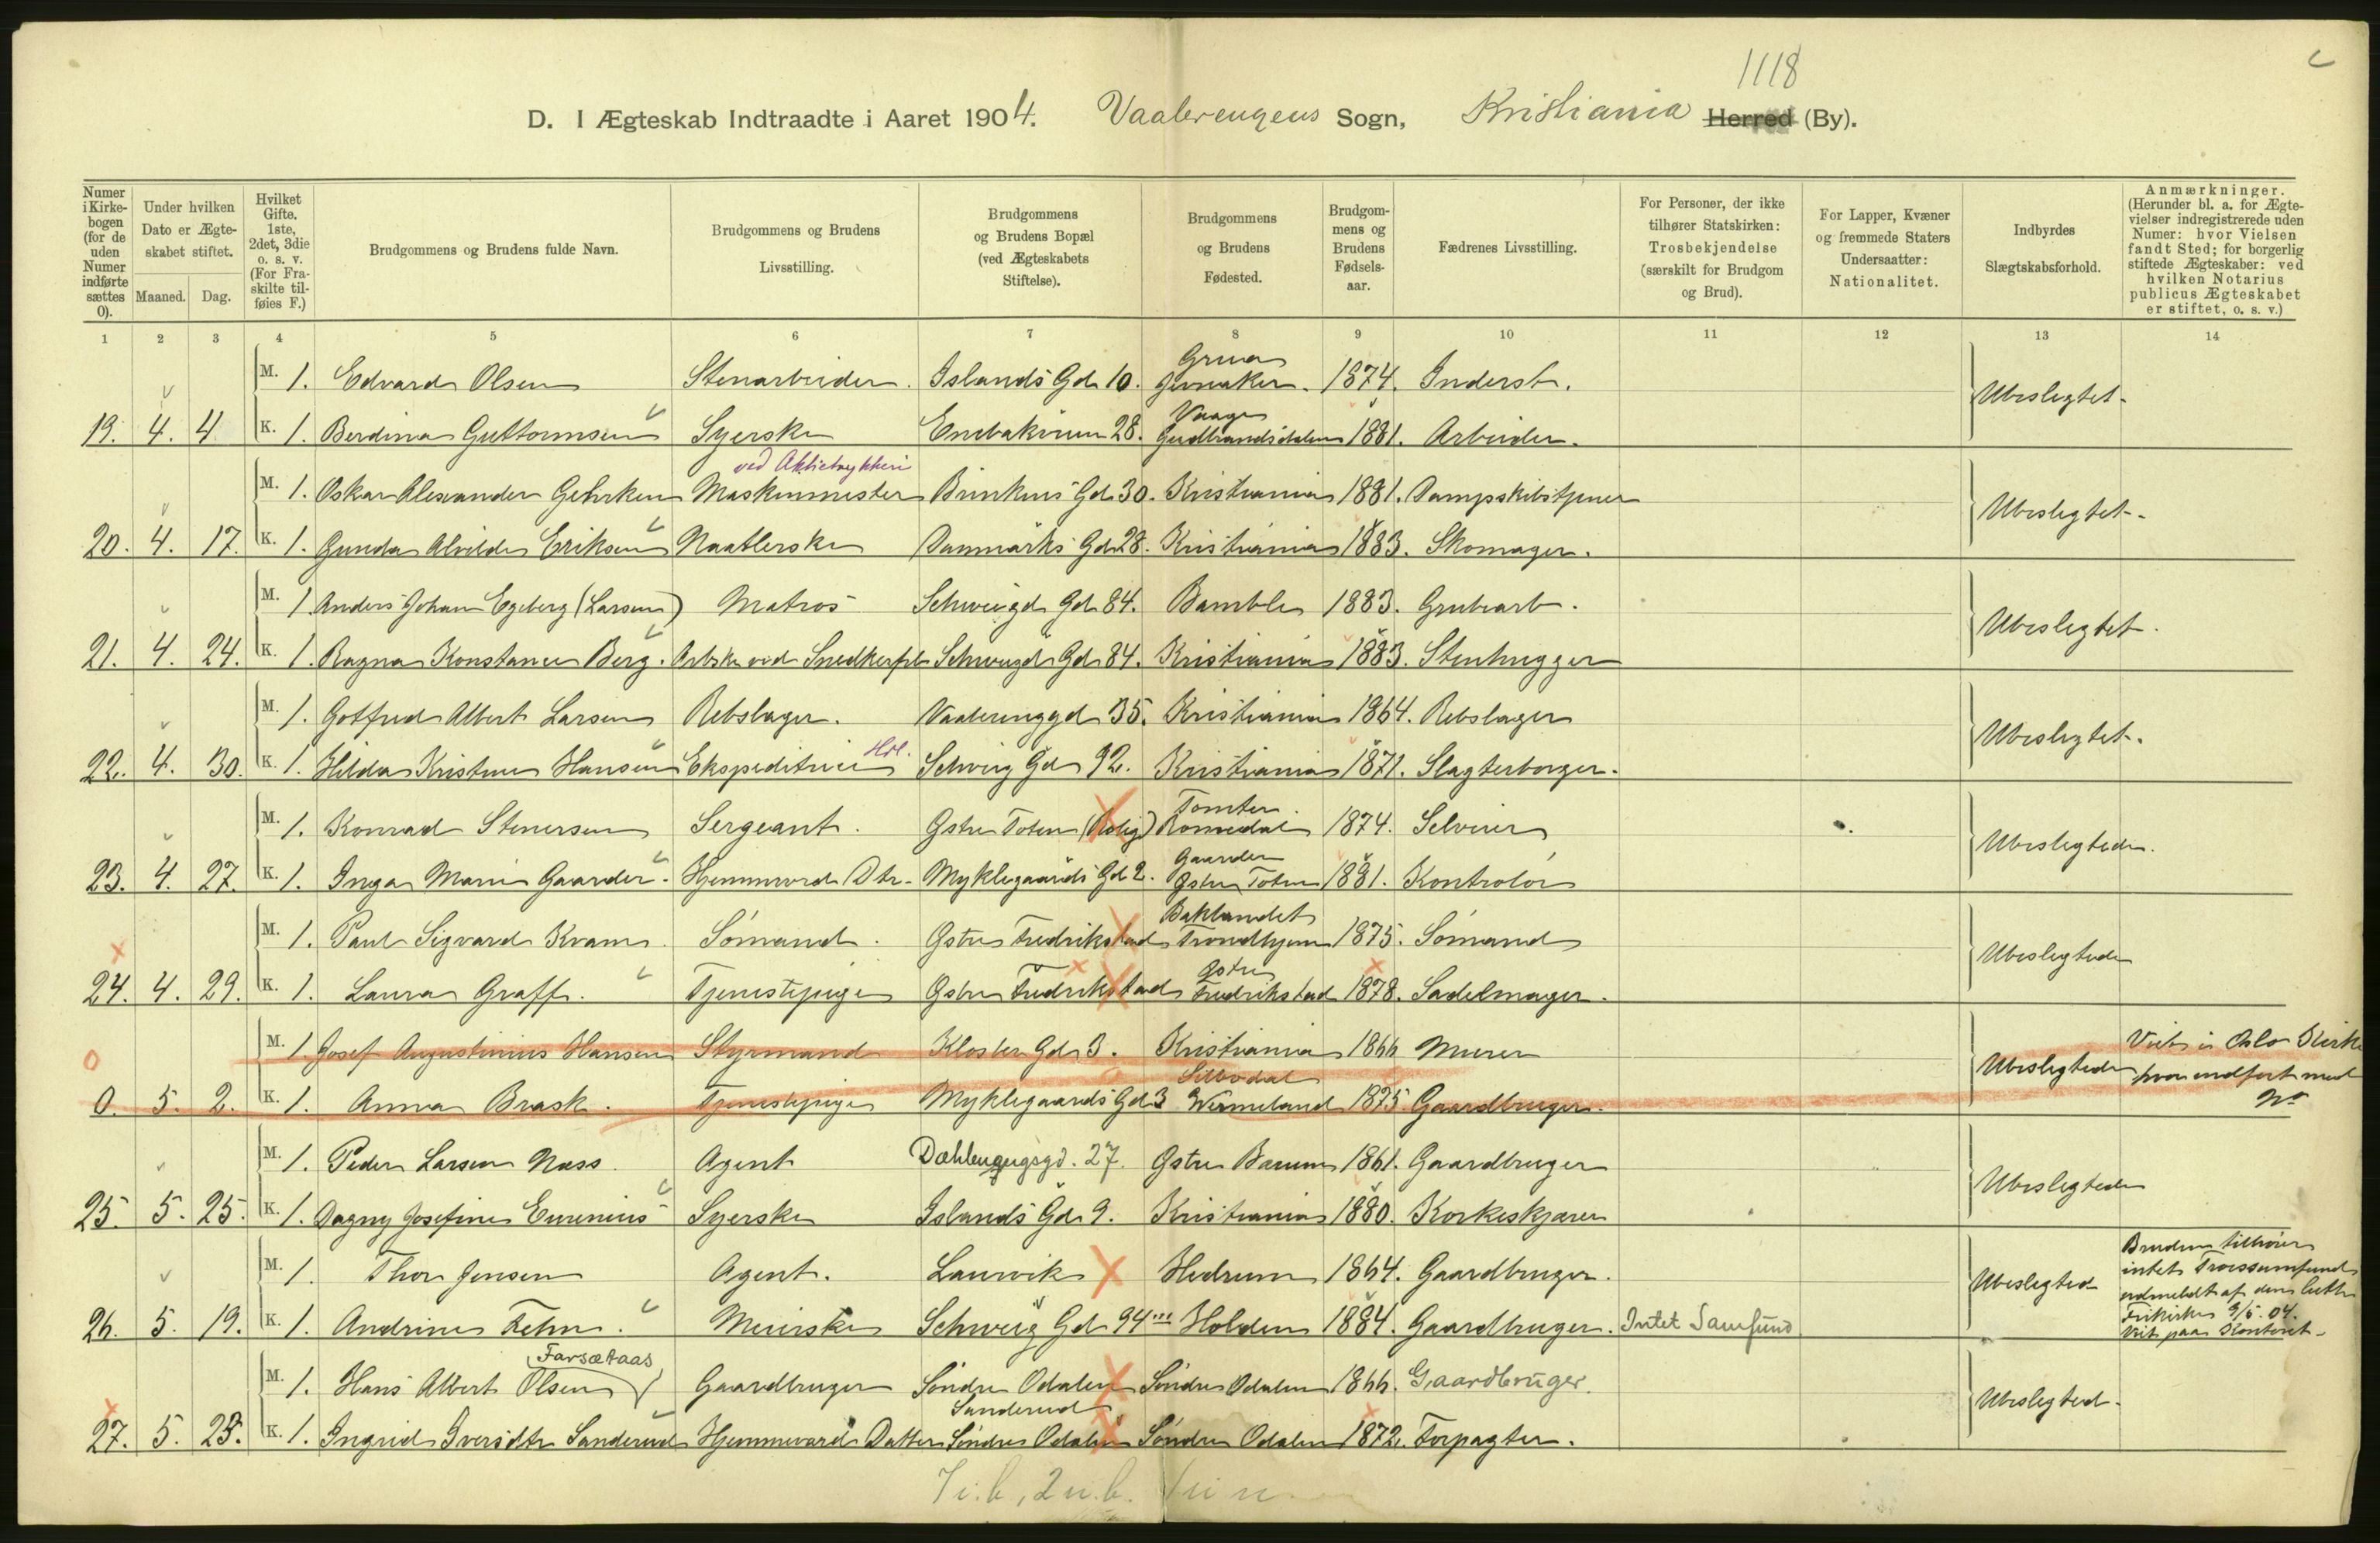 1118
D. I Ægteskab Indtraadte i Aaret 1904. Vaalerengens Sogn, Kristiania Herred (By).
Numer i Kirkebogen (for de uden Numer indførte sættes 0).
Under hvilken Dato er Ægteskabet stiftet.
Maaned. Dag.
Hvilket Gifte. 1ste, 2det, 3die o. s. v. (For Fraskilte tilføies F.)
Brudgommens og Brudens fulde Navn.
Brudgommens og Brudens Livsstilling.
Brudgommens og Brudens Bopæl (ved Ægteskabets Stiftelse).
Brudgommens og Brudens Fødested.
Brudgommens og Brudens Fødselsaar.
Fædrenes Livsstilling.
For Personer, der ikke tilhører Statskirken: Trosbekjendelse (særskilt for Brudgom og Brud).
For Lapper, Kvæner og fremmede Staters Undersaatter: Nationalitet.
Indbyrdes Slægtskabsforhold.
Anmærkninger. (Herunder bl. a. for Ægtevielser indregistrerede uden Numer: hvor Vielsen fandt Sted; for borgerlig stiftede Ægteskaber: ved hvilken Notarius publicus Ægteskabet er stiftet, o. s. v.)
1 2 3 4 5 6 7 8 9 10 11 12 13 14
M. 1. Edvard Olsen Stenarbeider. Islands Gd 10. Grua Jevnaker. 1874. Inderst.
19. 4. 4 K. 1. Berdina Guttormsen Syerske Enebakveien 28. Vaage Gudbrandsdalen 1881. Arbeider. Ubeslegtet.
ved Aktietrykkeri
M. 1. Oskar Alexander Gehrken Maskinmester Brinkens Gd 30. Kristiania 1881. Dampskibstjener
20. 4. 17. K. 1. Gunda Alvilde Eriksen Naatlerske Danmarks Gd 28. Kristiania 1883. Skomager. Ubeslegtet.
M. 1. Anders Johan Egeberg (Larsen) Matros Schweigd Gd 84. Bamble 1883. Grubearb.
21. 4. 24. K. 1. Ragna Konstance Berg. Arbske ved Snedkerfab Schweigd Gd 84. Kristiania 1883. Stenhugger Ubeslegtet.
M. 1. Gotfred Albert Larsen Rebslager. Vaalerenggd 35. Kristiania 1864. Rebslager
22. 4. 30. K. 1. Hilda Kristine Hansen Ekspeditrice Hdl. Schweig Gd 92. Kristiania 1871. Slagterborger. Ubeslegtet.
M. 1. Konrad Stenersen Sergeant. Østre Toten (Bolig) Tomter Romedal 1874. Selveier
23. 4. 27. K. 1. Inga Marie Gaarder. Hjemmevd Dtr. Myklegaards Gd 2. Gaarder Østre Toten 1881. Kontrolør Ubeslegtede.
M. 1. Paul Sigvard Kvam. Sømand. Østre Fredrikstad Baklandet Trondhjem 1875. Sømand
24. 4. 29. K. 1. Laura Graff. Tjenestepige Østre Fredrikstad Østre Fredrikstad 1878. Sadelmager. Ubeslegtede
M. 1. Josef Augustinius Hansen Styrmand Kloster Gd 3. Kristiania 1866 Murer
0. 5. 2. K. 1. Anna Brask. Tjenestepige Myklegaards Gd 3 Silbodal Wermeland 1875 Gaardbruger. Ubeslegtede Viet i Oslo Kirke hvor indført med No
M. 1. Peder Larsen Næss. Agent Dahlengengsgd. 27. Østre Bærum 1861. Gaardbruger
25. 5. 25. K. 1. Dagny Josefine Eurenius Syerske Islands Gd 9. Kristiania 1880. Korkeskjærer Ubeslegtede
M. 1. Thor Jensen Agent. Laurvik Hedrum 1864. Gaardbruger.
26. 5. 19. K. 1. Andrine Fehn. Meierske Schweig Gd 94 III Holden 1884. Gaardbruger. Intet Samfund Ubeslegted Bruden tilhører intet Troessamfund udmeldt af den luth Frikirke 9/5. 04. Viet paa Kontoret.
Farsætaas
M. 1. Hans Albert Olsen Gaardbruger Søndre Odalen Søndre Odalen 1866. Gaardbruger.
27. 5. 23. K. 1. Ingrid Iversdtr Sanderud Hjemmeværd Datter Sanderud Søndre Odalen Søndre Odalen 1872. Forpagter. Ubeslegted.
7 i.b, 2 u.b.